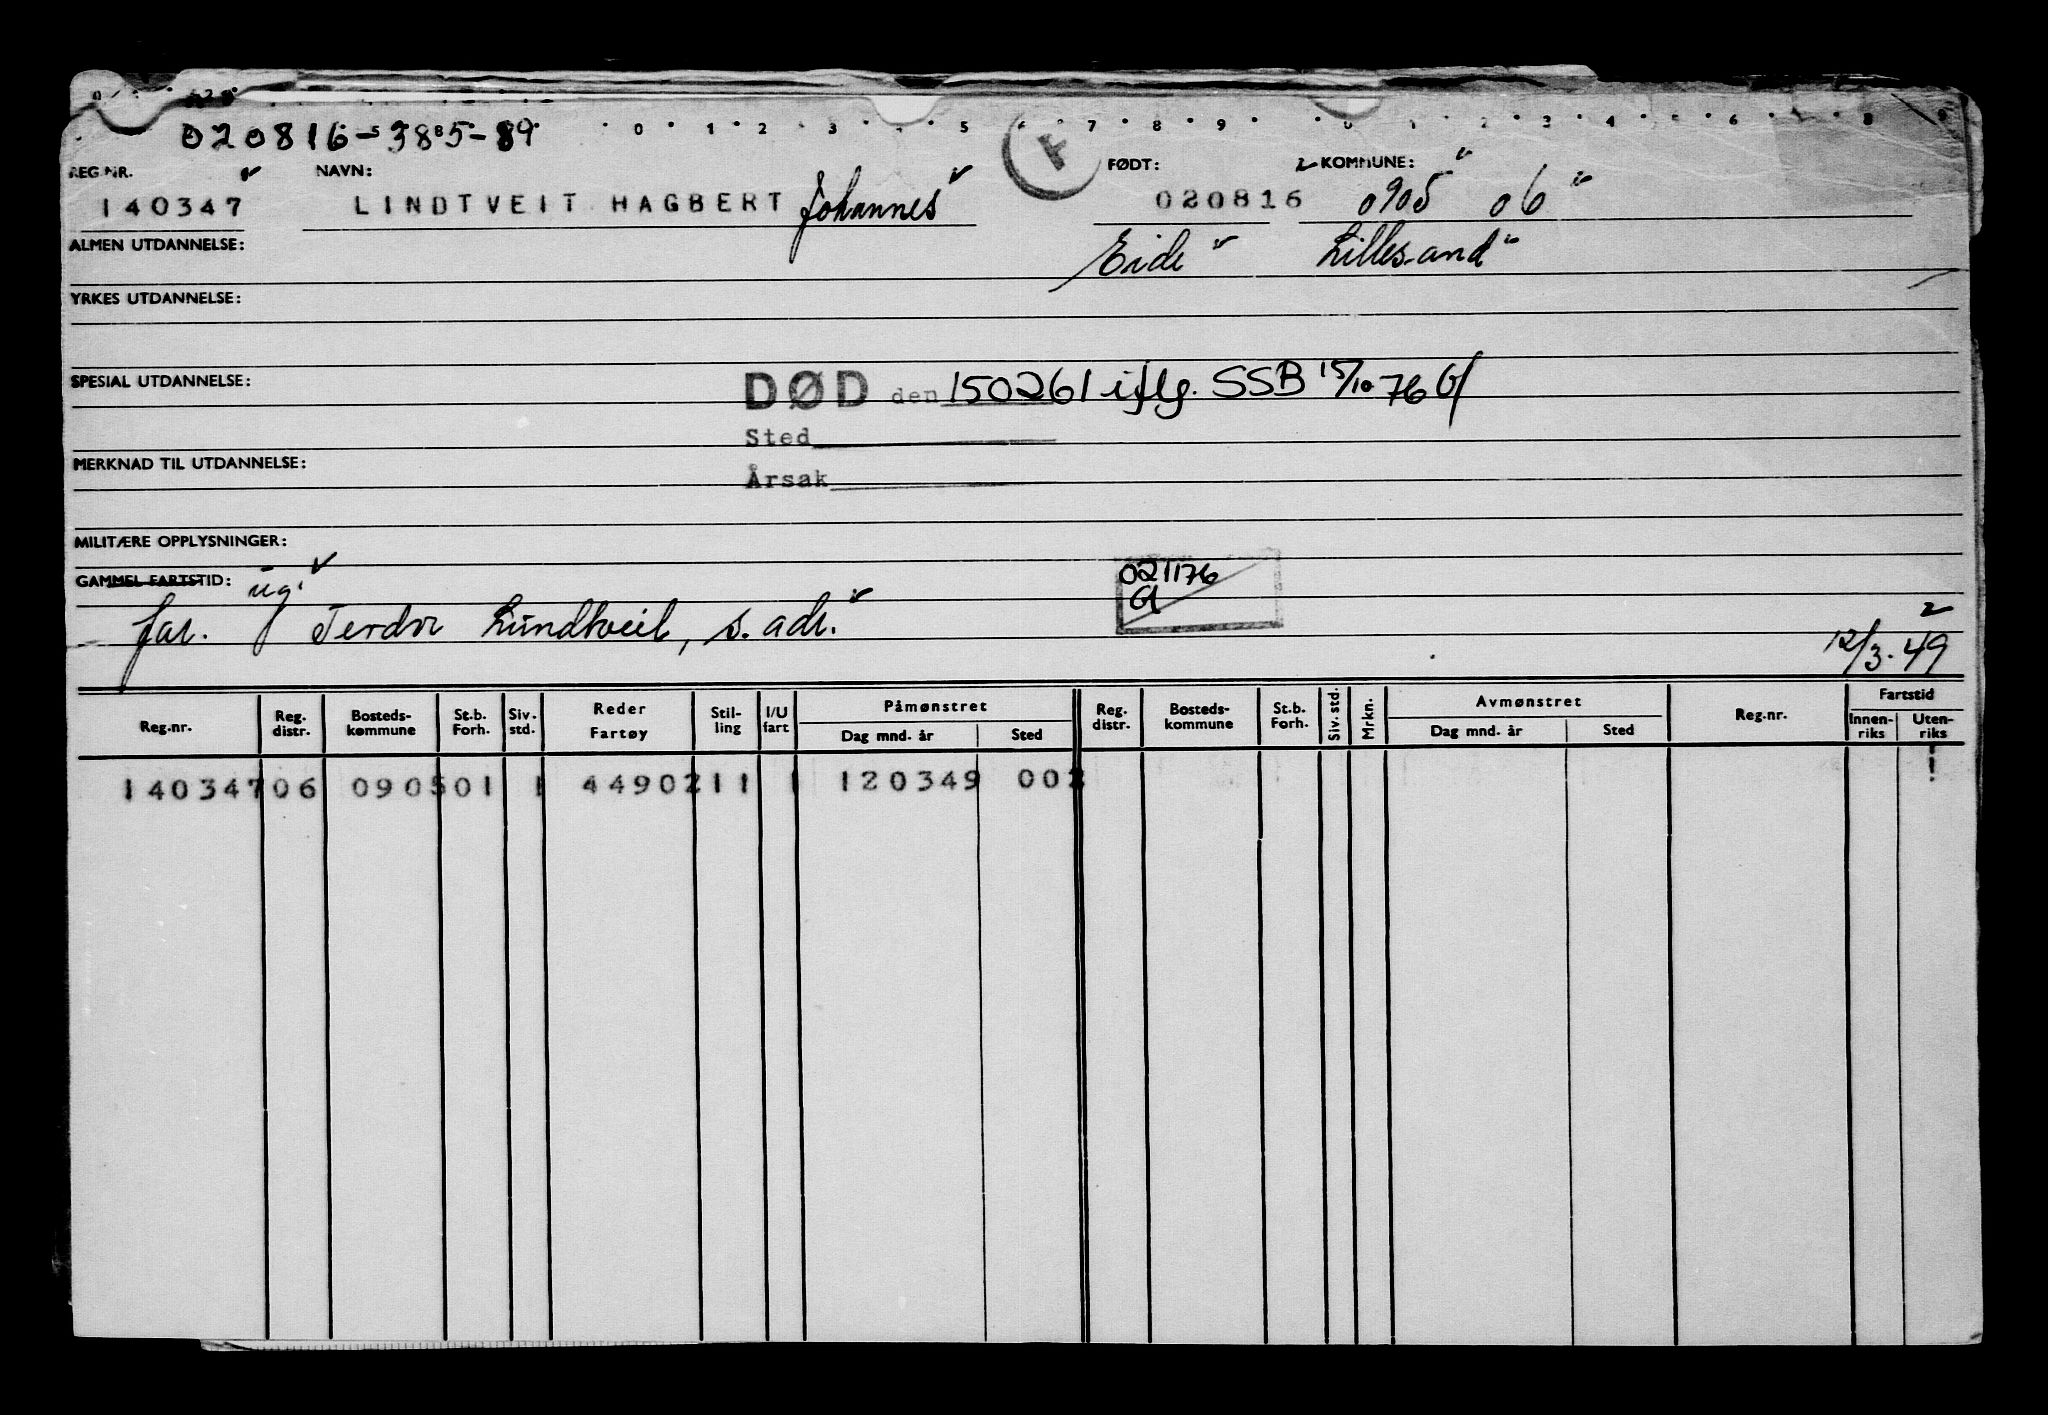 020816-53885-89
0 1 2 3 4 5 7 8 9 0 1 2 3 4 5 6 7 8 9
REG.NR. NAVN: F FØDT: KOMMUNE:
140347 LINDTVEIT HAGBERT Johannes 020816 0905 06
ALMEN UTDANNELSE: Eide Lillesand
YRKES UTDANNELSE:
SPESIAL UTDANNELSE: DØD den 150261 iflg. SSB 15/10 76 Gf
Sted
MERKNAD TIL UTDANNELSE:
Årsak
MILITÆRE OPPLYSNINGER:
GAMMEL FARTSTID: ug. 021176
far. Lundtveit, s. adr. 12/3.49
Reg.nr. Reg. distr. Bosteds-kommune St.b. Forh. Siv. std. Reder Fartøy Stil-ling I/U fart Påmønstret Dag mnd. år Sted Reg. distr. Bosteds-kommune St.b. Forh. Siv. std. Mrkn. Avmønstret Dag mnd. år Sted Reg.nr. Fartstid Innen-riks Uten-riks
140347 06 0905 01 1 44902 11 1 120349 002